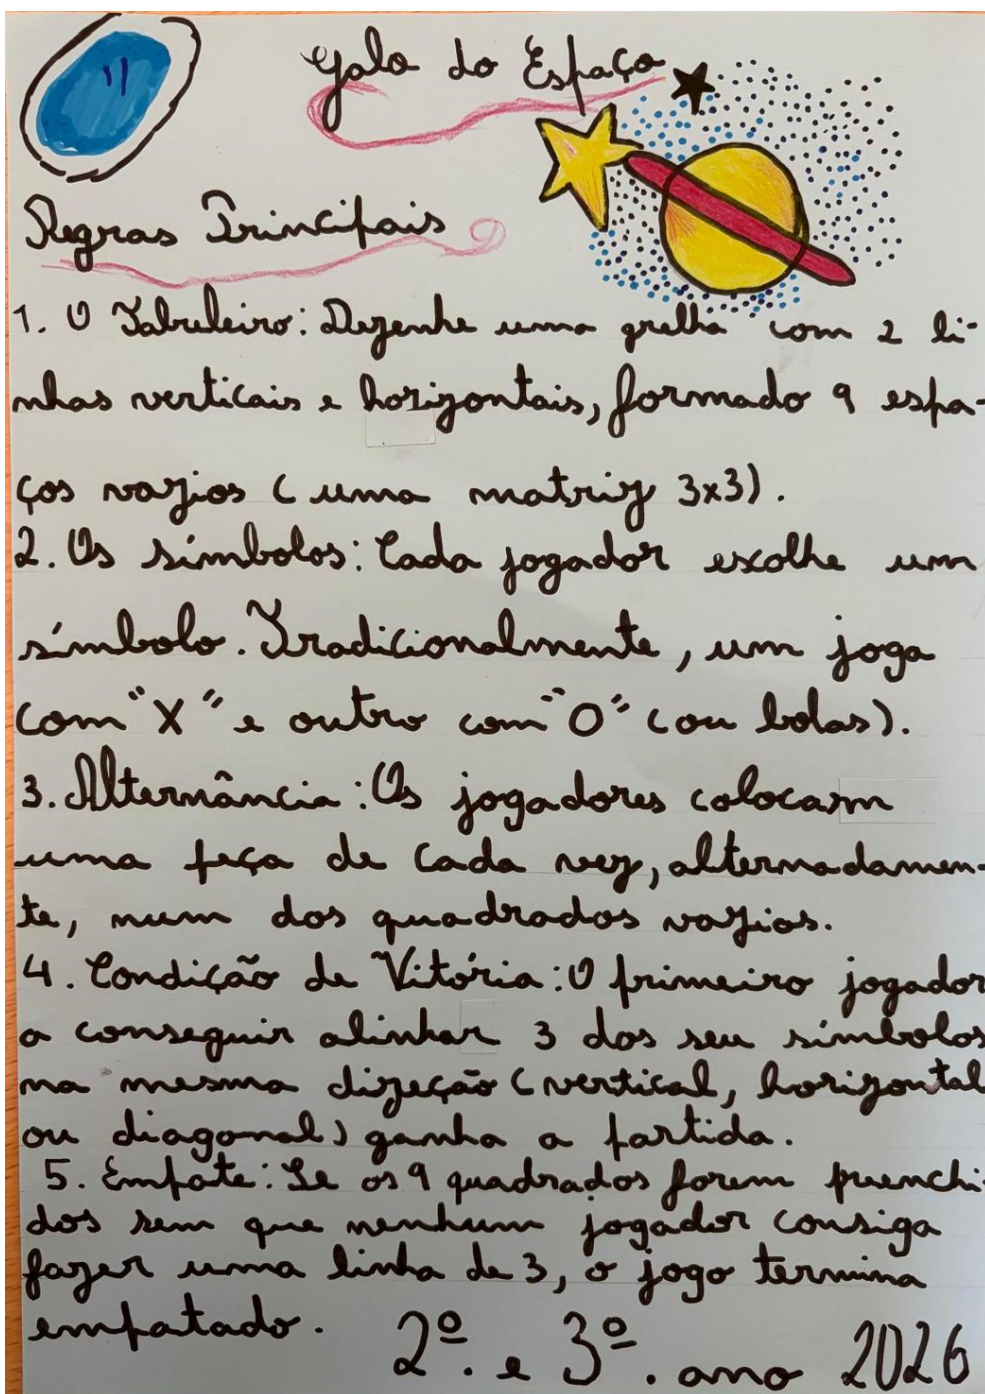 Galo do Espaço
Regras Principais
1. O Tabuleiro: Dezenhe uma grelha com 2 li-
nhas verticais e horizontais, formado 9 espa-
ços vazios (uma matriz 3x3).
2. Os símbolos: Cada jogador escolhe um
símbolo. Tradicionalmente, um joga
com "X" e outro com "O" (ou bolas).
3. Alternância: Os jogadores colocam
uma peça de cada vez, alternadamen-
te, num dos quadrados vazios.
4. Condição de Vitória: O primeiro jogador
a conseguir alinhar 3 dos seu símbolos
na mesma direção (vertical, horizontal
ou diagonal) ganha a partida.
5. Empate: Se os 9 quadrados forem prenchi-
dos sem que nenhum jogador consiga
fazer uma linha de 3, o jogo termina
empatado.
2º. e 3º. ano 2026